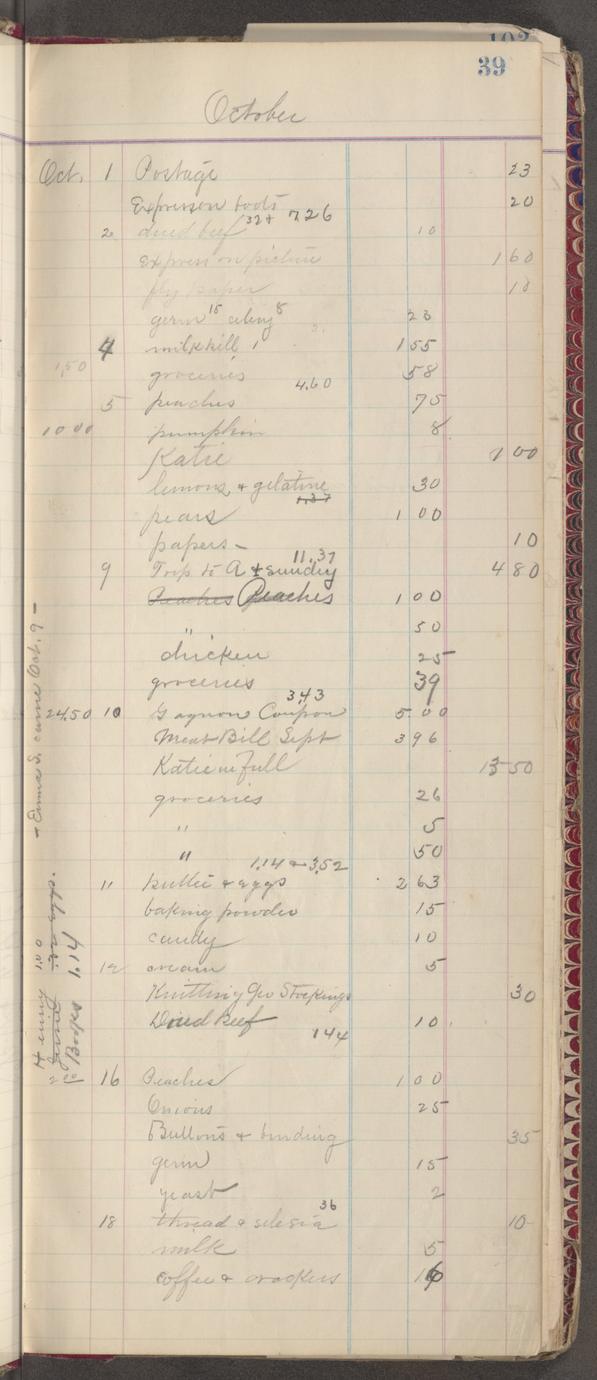 102
39
October
Oct. 1 Postage 23
Express on boots 20
32+ 7.26
2 dried beef 10
express on picture 1 60
fly paper 10
germ 15 celery 8 23
4 milk bill 1 55
1,50
groceries 58
4.60
5 peaches 75
10 00 pumpkin 8
Katie 1 00
lemons & gelatine 30
1.37
pears 1 00
papers - 10
11.37
9 Trip to A & sundry 4 80
Peaches Peaches 1 00
" 50
chicken 25
groceries 39
3,43
24,50 10 Gagnon Coupon 5 00
Meat Bill Sept 3 96
Katie in full 13 50
groceries 26
" 5
" 50
1.14 3,52
11 butter & eggs 2 63
baking powder 15
candy 10
12 cream 5
Knitting Geo Stockings 30
Dried Beef 10
144
2 00 16 Peaches 1 00
Onions 25
Buttons & binding 35
germ 15
yeast 2
36
18 thread & silesia 10
milk 5
coffee & crackers 16
- Emma S. came Oct. 9 -
Henny 1.00
Books 1.14